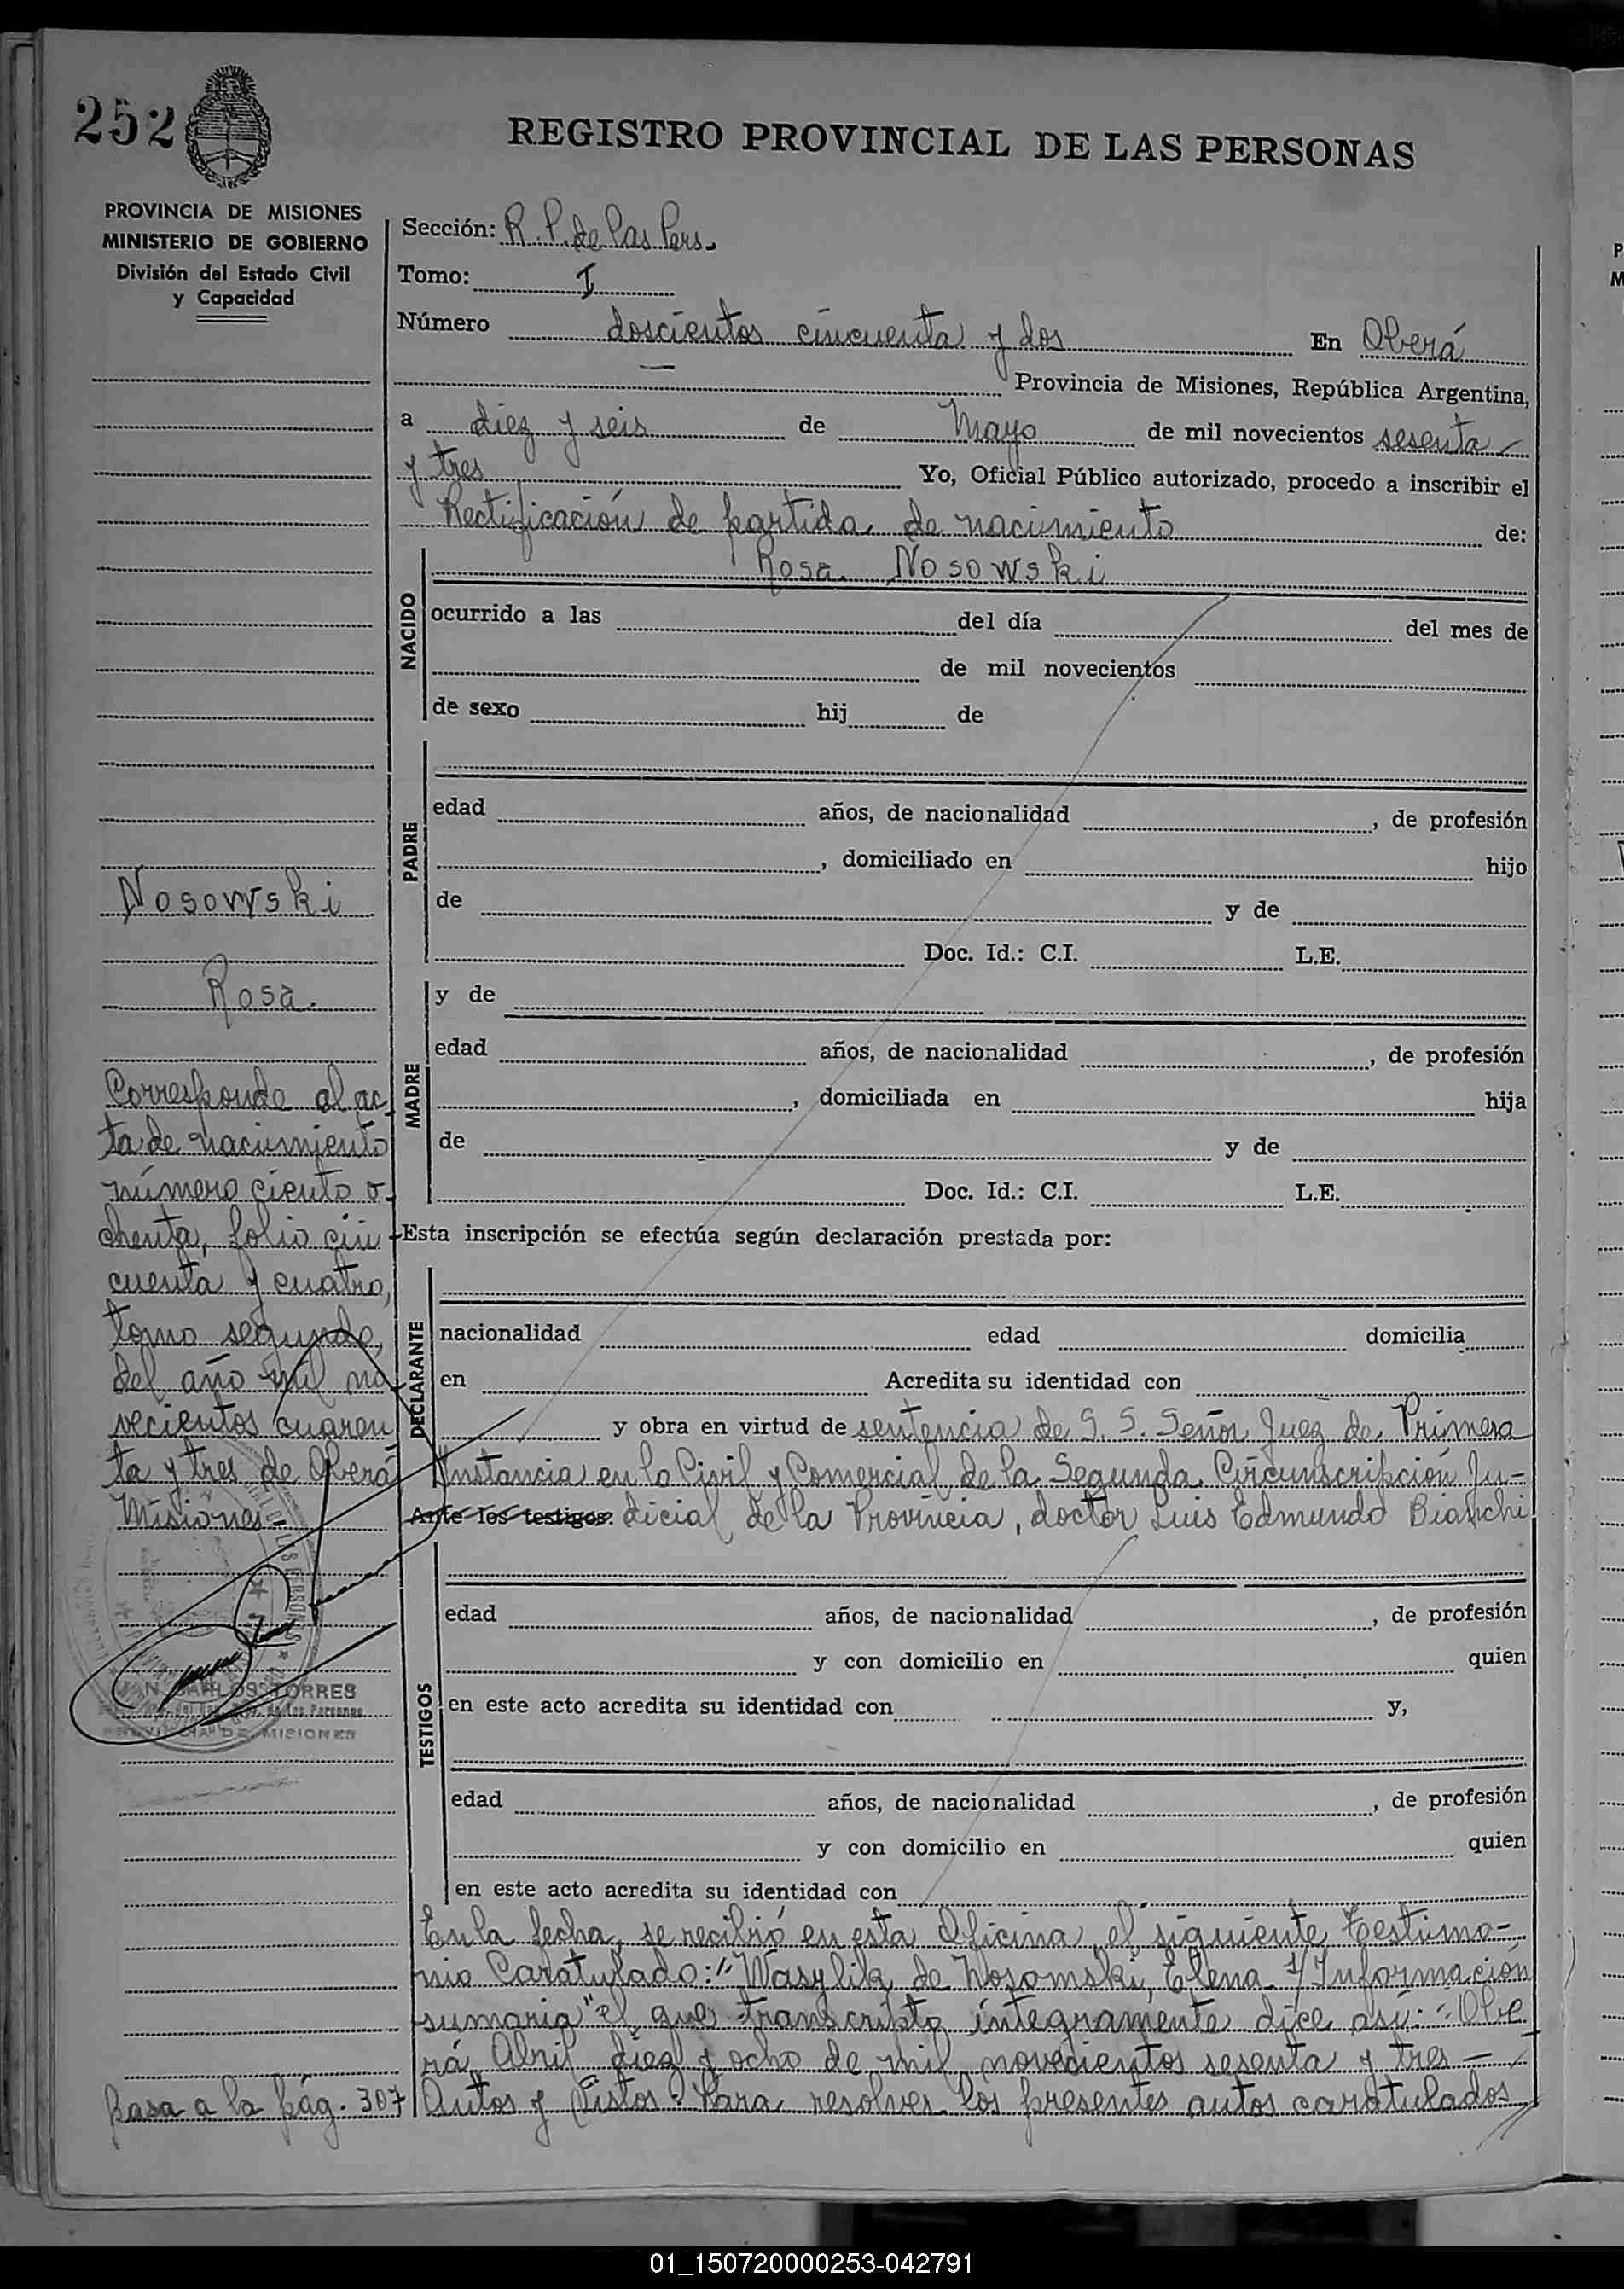 252
REGISTRO PROVINCIAL DE LAS PERSONAS
PROVINCIA DE MISIONES
MINISTERIO DE GOBIERNO
División del Estado Civil
y Capacidad
Sección: R. P. de las Pers.
Tomo: I
Número doscientos cincuenta y dos En Oberá
Provincia de Misiones, República Argentina,
a diez y seis de Mayo de mil novecientos sesenta
y tres Yo, Oficial Público autorizado, procedo a inscribir el
Rectificación de partida de nacimiento de:
NACIDO
Rosa Nosowski
ocurrido a las del día del mes de
de mil novecientos
de sexo hij de
PADRE
edad años, de nacionalidad , de profesión
, domiciliado en hijo
de y de
Doc. Id.: C.I. L.E.
MADRE
y de
edad años, de nacionalidad , de profesión
, domiciliada en hija
de y de
Doc. Id.: C.I. L.E.
Esta inscripción se efectúa según declaración prestada por:
DECLARANTE
nacionalidad edad domicilia
en Acredita su identidad con
y obra en virtud de sentencia de S. S. Señor Juez de Primera
Instancia en lo Civil y Comercial de la Segunda Circunscripción Ju-
Ante los testigos: dicial de la Provincia, doctor Luis Edmundo Bianchi
TESTIGOS
edad años, de nacionalidad , de profesión
y con domicilio en quien
en este acto acredita su identidad con y,
edad años, de nacionalidad , de profesión
y con domicilio en quien
en este acto acredita su identidad con
En la fecha, se recibió en esta Oficina, el siguiente Testimo-
nio Caratulado: "Wasylik de Nosomski, Elena s/Información
sumaria" el que transcripto íntegramente dice así: "Obe
rá, Abril diez y ocho de mil novecientos sesenta y tres —
Autos y Vistos: Para resolver los presentes autos caratulados
Nosowski
Rosa.
Corresponde al ac
ta de nacimiento
número ciento o-
chenta, folio cin
cuenta y cuatro,
tomo segundo,
del año mil no
vecientos cuaren
ta y tres de Oberá
Misiones-
TORRES
de las Personas
PROVINCIA DE MISIONES
Pasa a la pág. 307
01_150720000253-042791